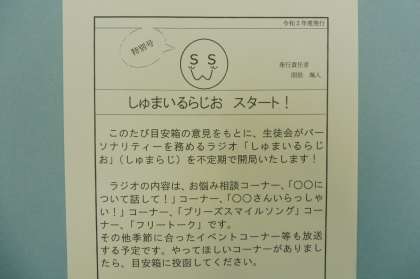 令和2年度発行
特別号
SS
発行責任者
しゅまいるらじお スタート!
このたび目安箱の意見をもとに、生徒会がパー
ソナリティーを務めるラジオ「しゅまいるらじ
お」(しゅまらじ)を不定期で開局いたします!
ラジオの内容は、お悩み相談コーナー、「〇〇に
ついて話して!」コーナー、「〇〇さんいらっしゃ
い!」コーナー、「プリーズスマイルソング」コー
ナー、「フリートーク」です。
その他季節に合ったイベントコーナー等も放送
する予定です。やってほしいコーナーがありまし
たら、目安箱に投函してください。